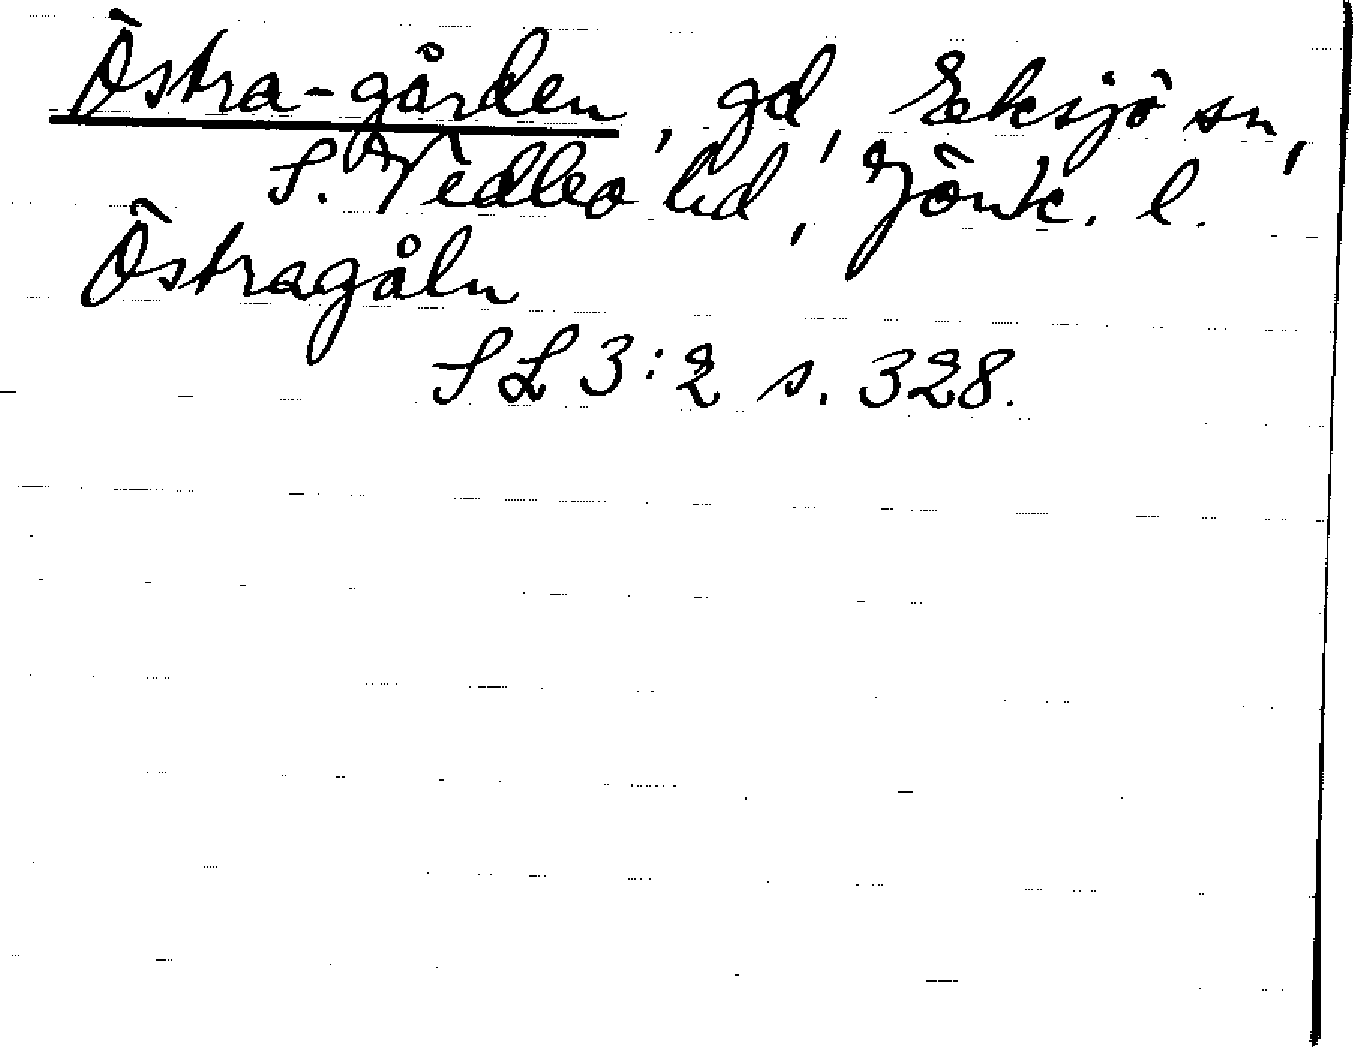 Östra-gården, gd, Eksjö sn,
S. Vedbo hd, Jönk. l.
Östragåln
SL 3:2 s. 328.